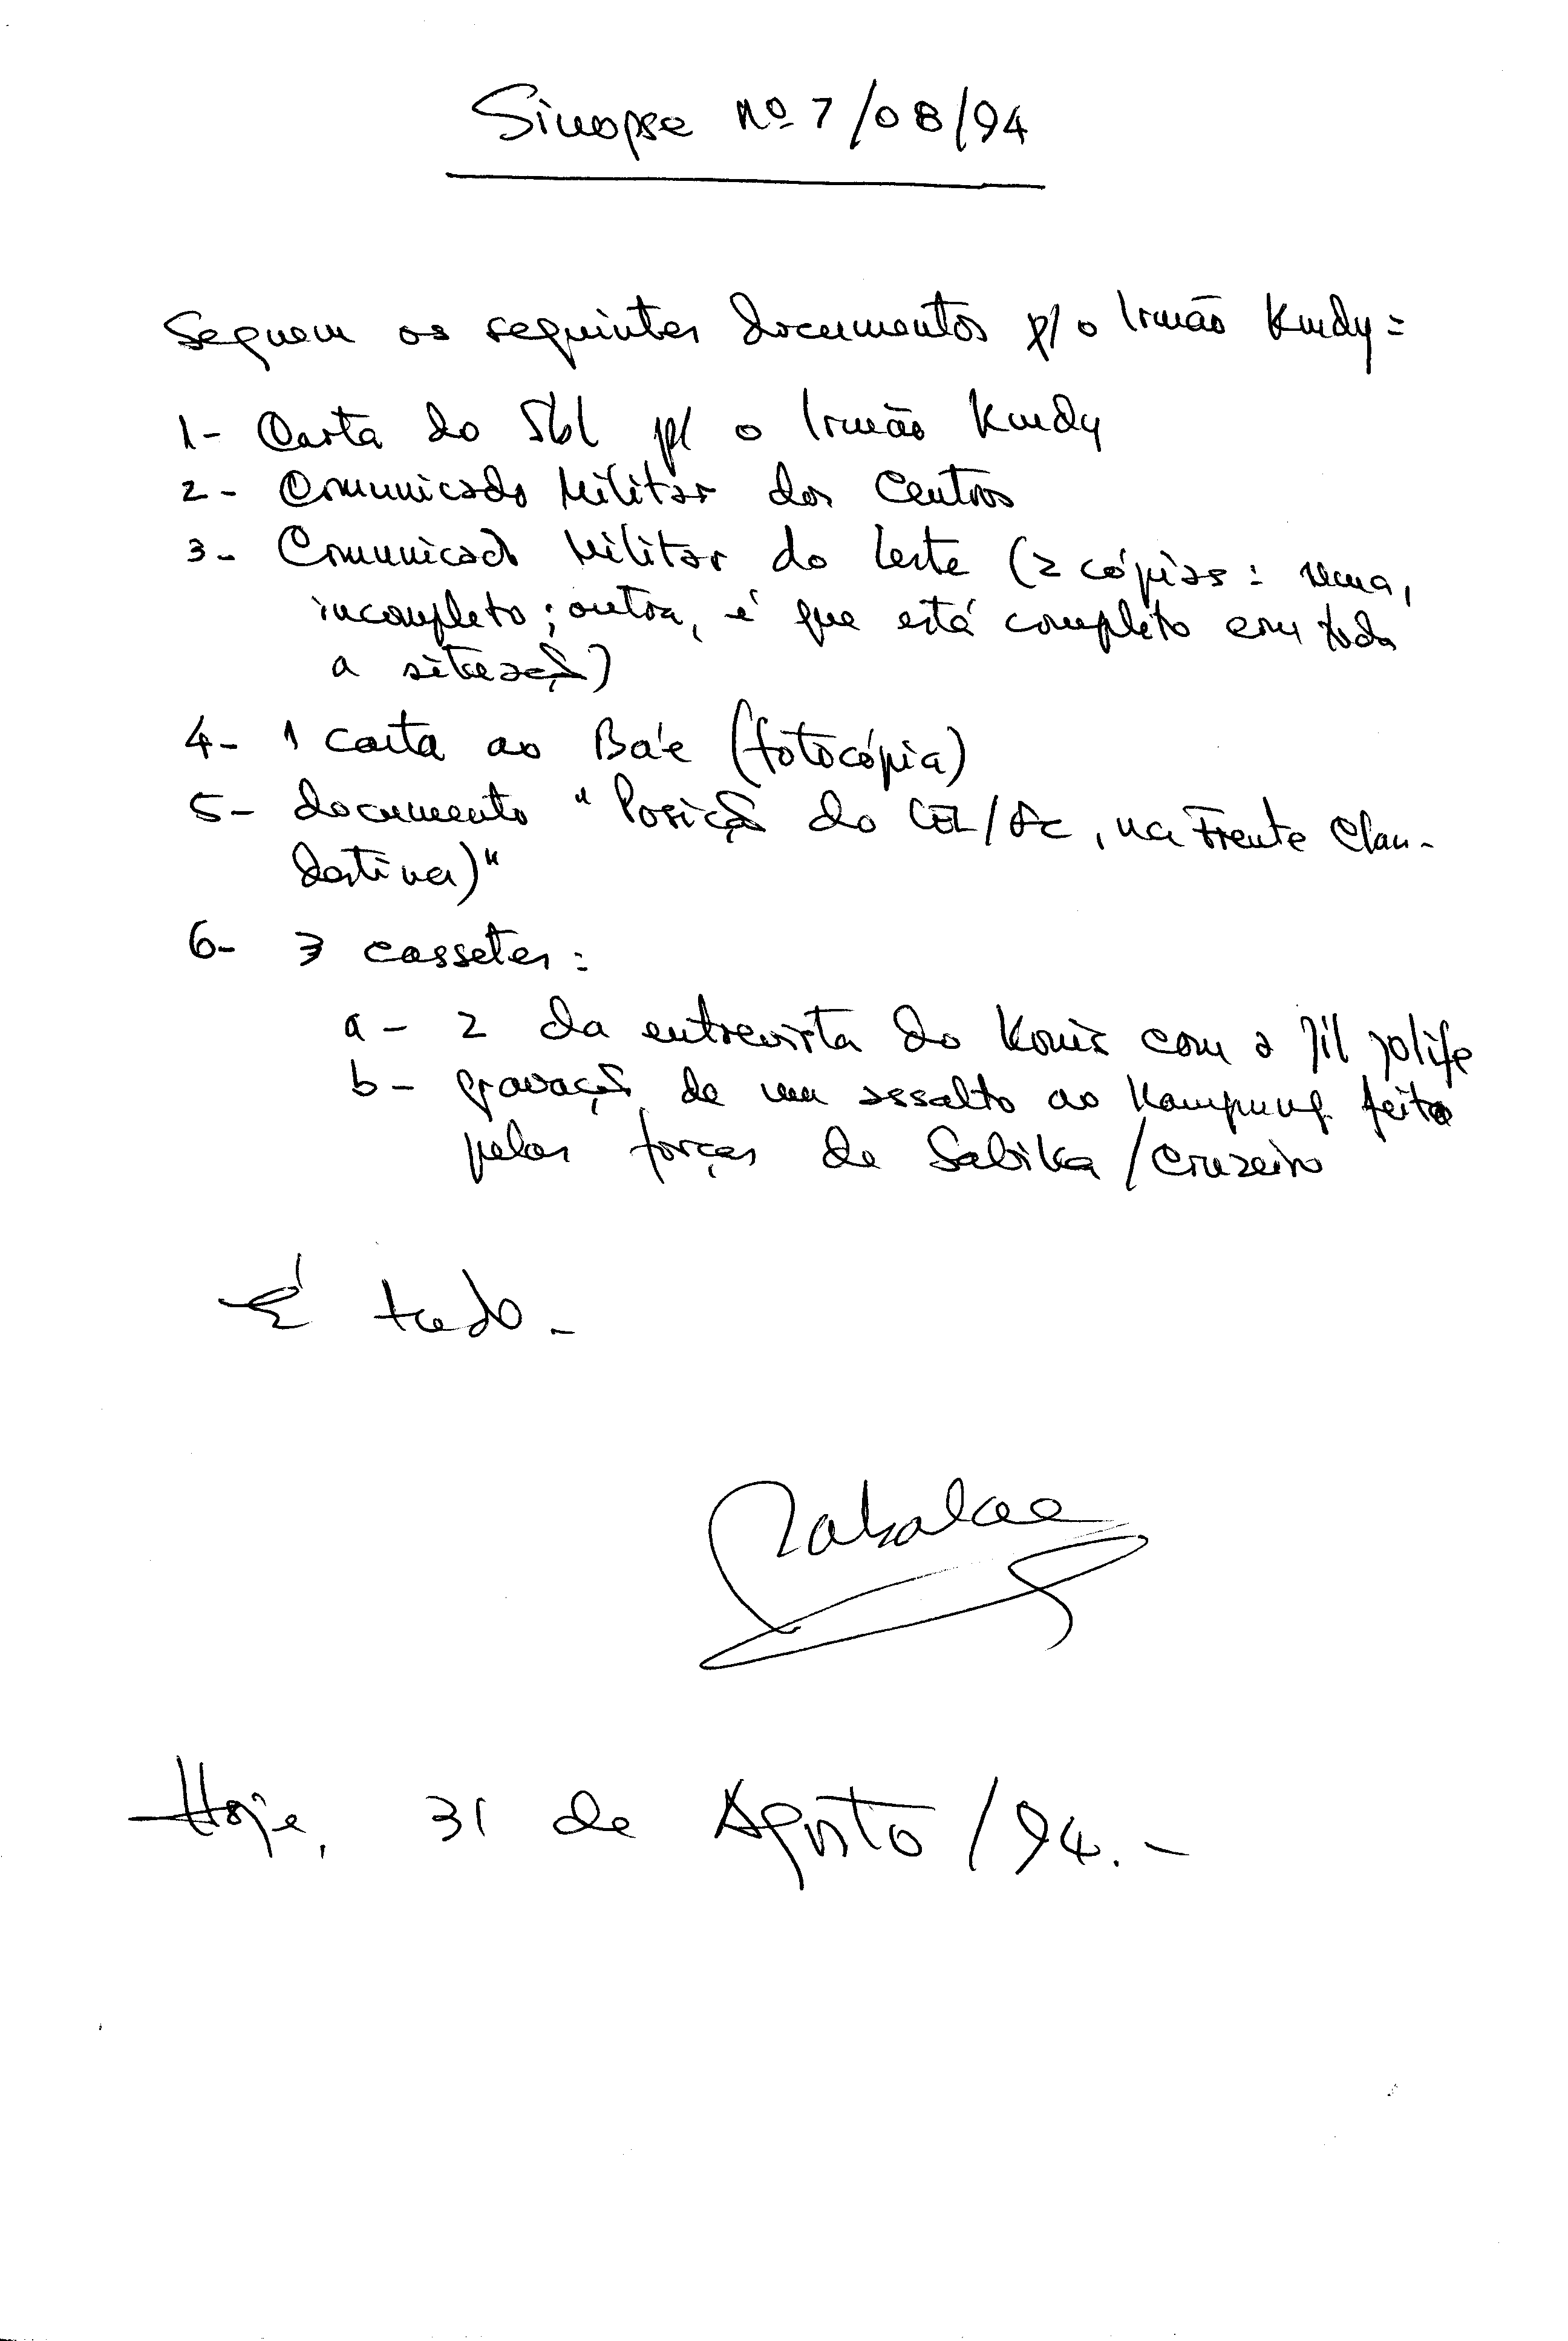 Sinopse nº 7/08/94
Seguem os seguintes documentos p/ o Irmão Kudy =
1- Carta do Sbl p/ o Irmão Kudy
2- Comunicado Militar dos Centros
3- Comunicado Militar do Leste (2 cópias: uma,
incompleto; outra, é que está completo em toda
a situação)
4- 1 carta ao Ba'e (fotocópia)
5- documento "Posição do CEL/FC, na Frente Clan-
destina)"
6- 3 cassetes:
a- 2 da entrevista do Konis com a Jil Jolife
b- gravação de um assalto ao Kampung feito
pelas forças de Sabika/Cruzeiro
É tudo-
Hoje, 31 de Agosto/94.-